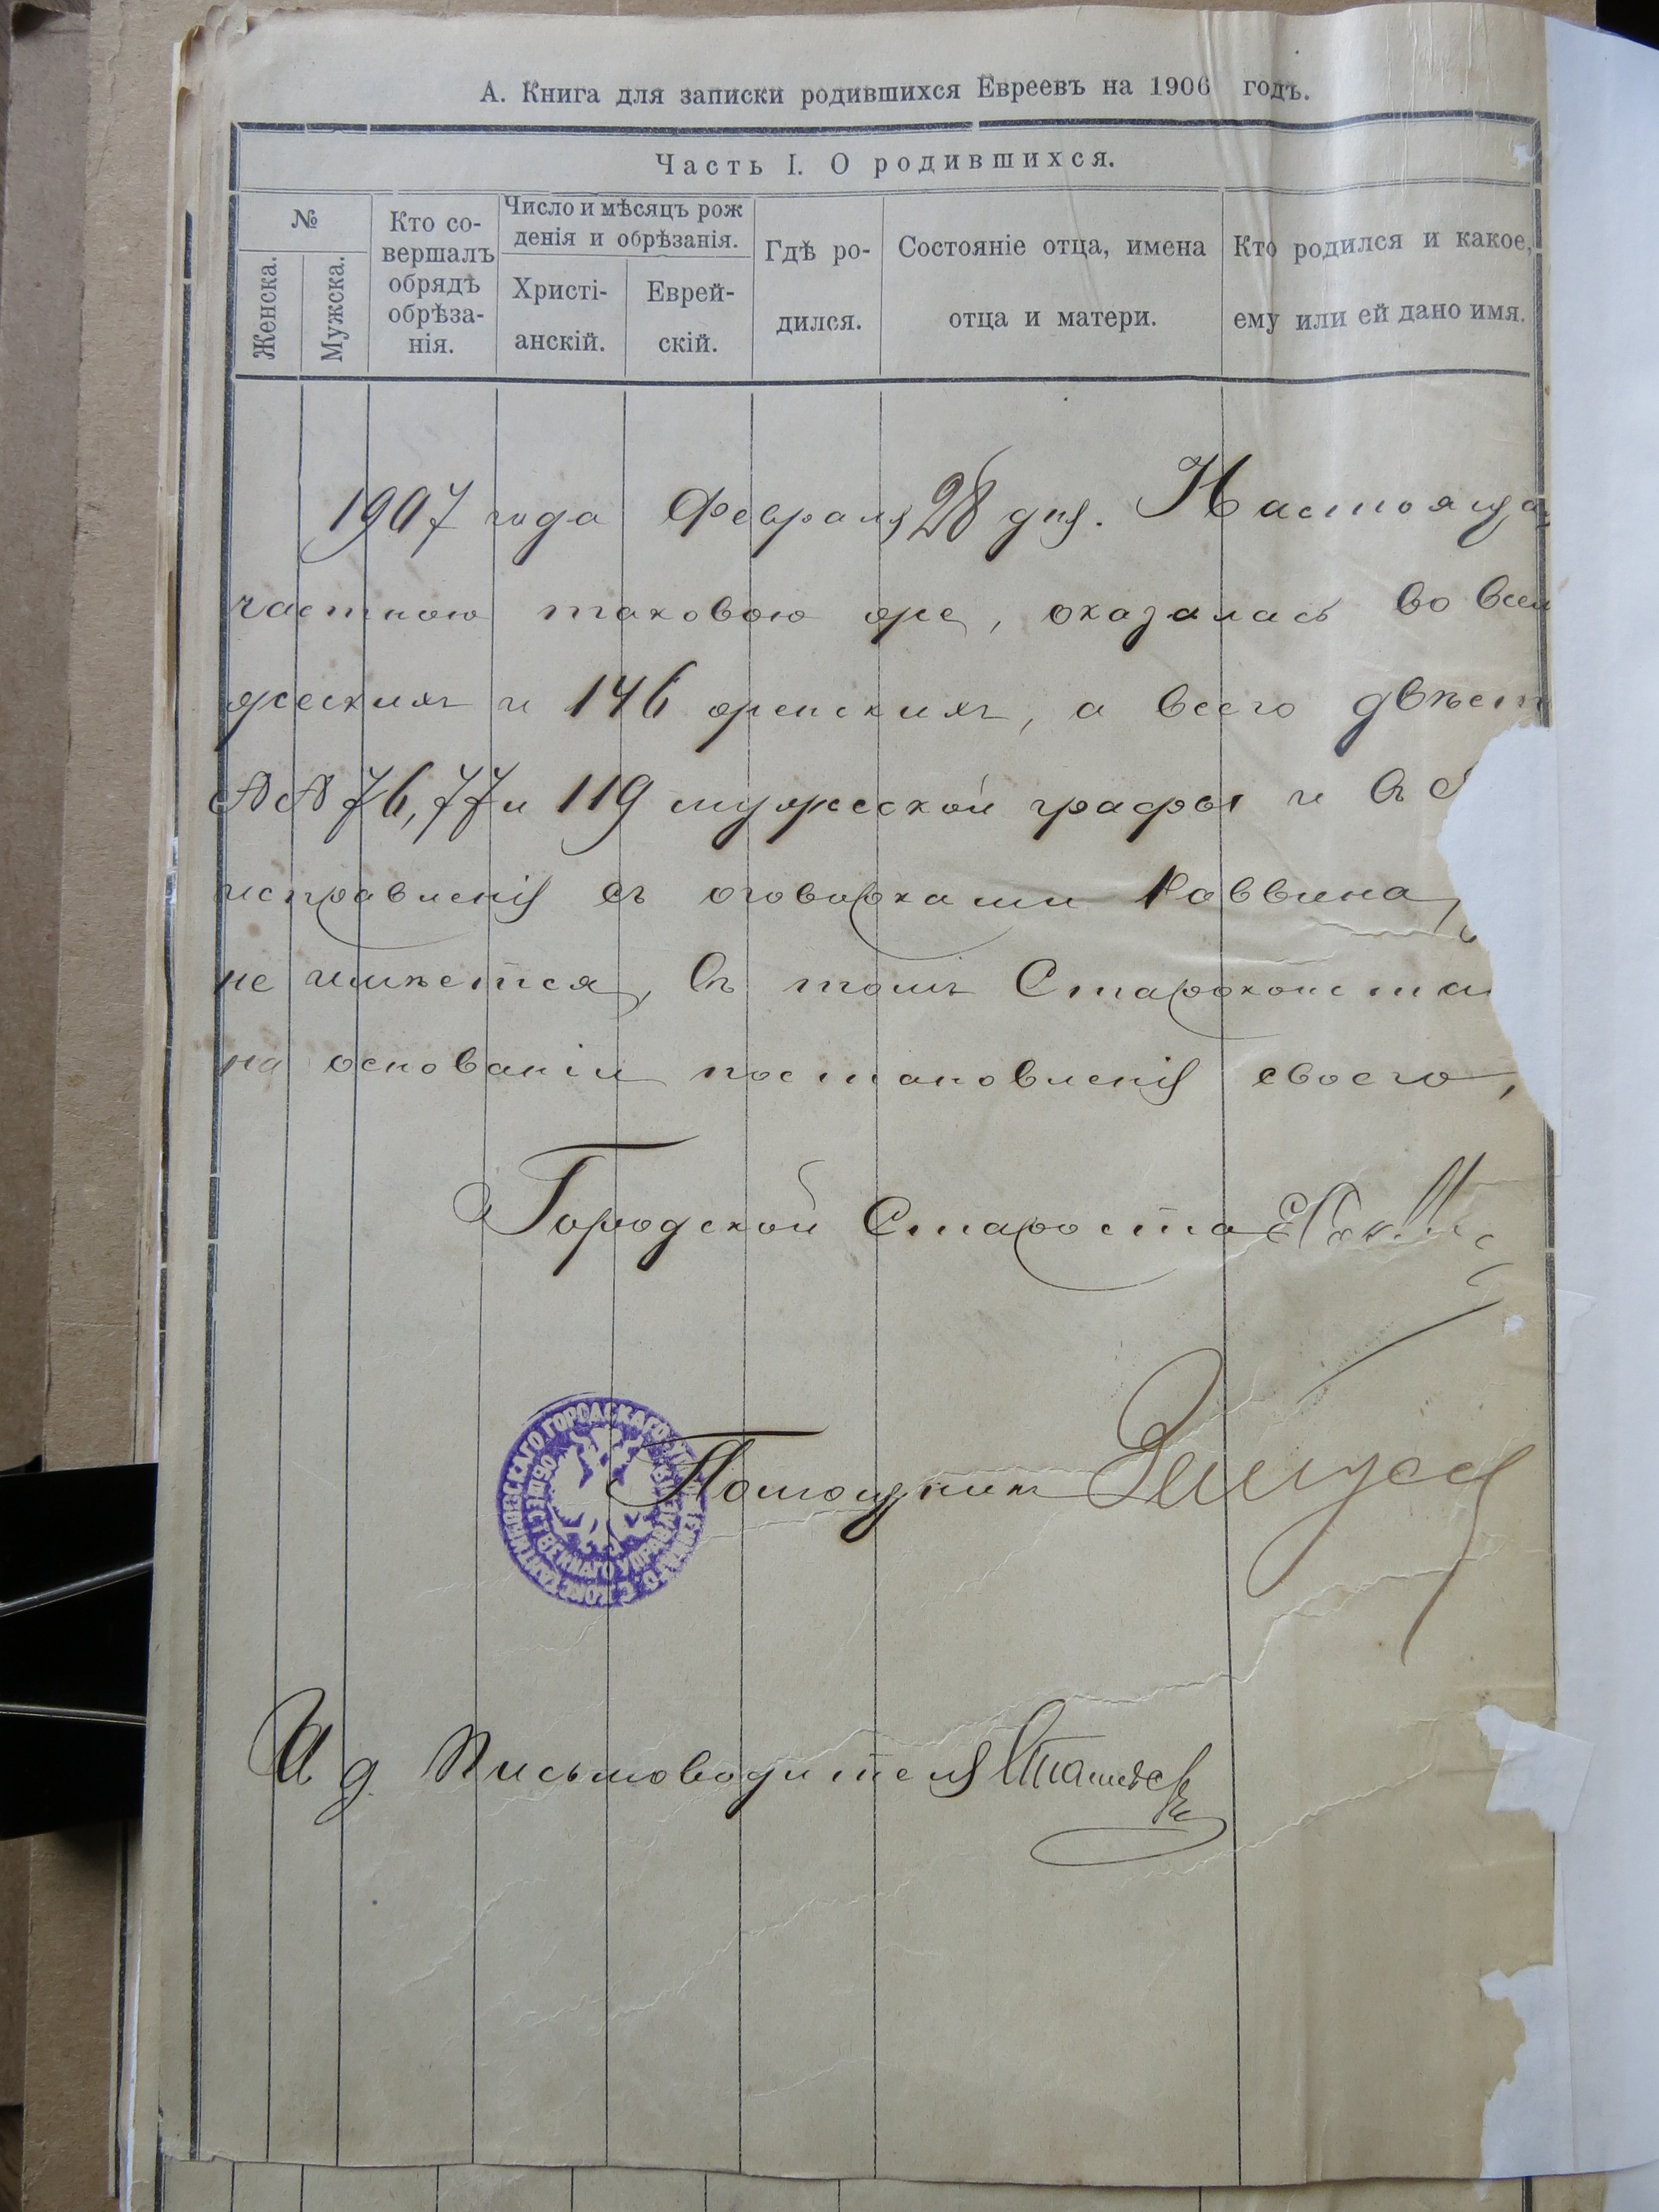 А. Книга для записки родившихся Евреевъ на 1906 годъ.
Часть I. О родившихся.
№
Женска.
Мужска.
Кто со-
вершалъ
обрядъ
обрѣза-
нія.
Число и мѣсяцъ рож
денія и обрѣзанія.
Христі-
анскій.
Еврей-
скій.
Гдѣ ро-
дился.
Состояніе отца, имена
отца и матери.
Кто родился и какое,
ему или ей дано имя.
1907 года Февраля 28 дня. Настояща
частною таковою же, оказалась во всем
жескихъ и 146 женскихъ, а всего двѣст
№№ 76, 77 и 119 мужеской графы и въ
исправленія съ оговорками Раввина,
не имѣется, въ томъ Староконстан
на основаніи постановленія своего,
Городской Староста
Помощникъ
И д Письмоводителя